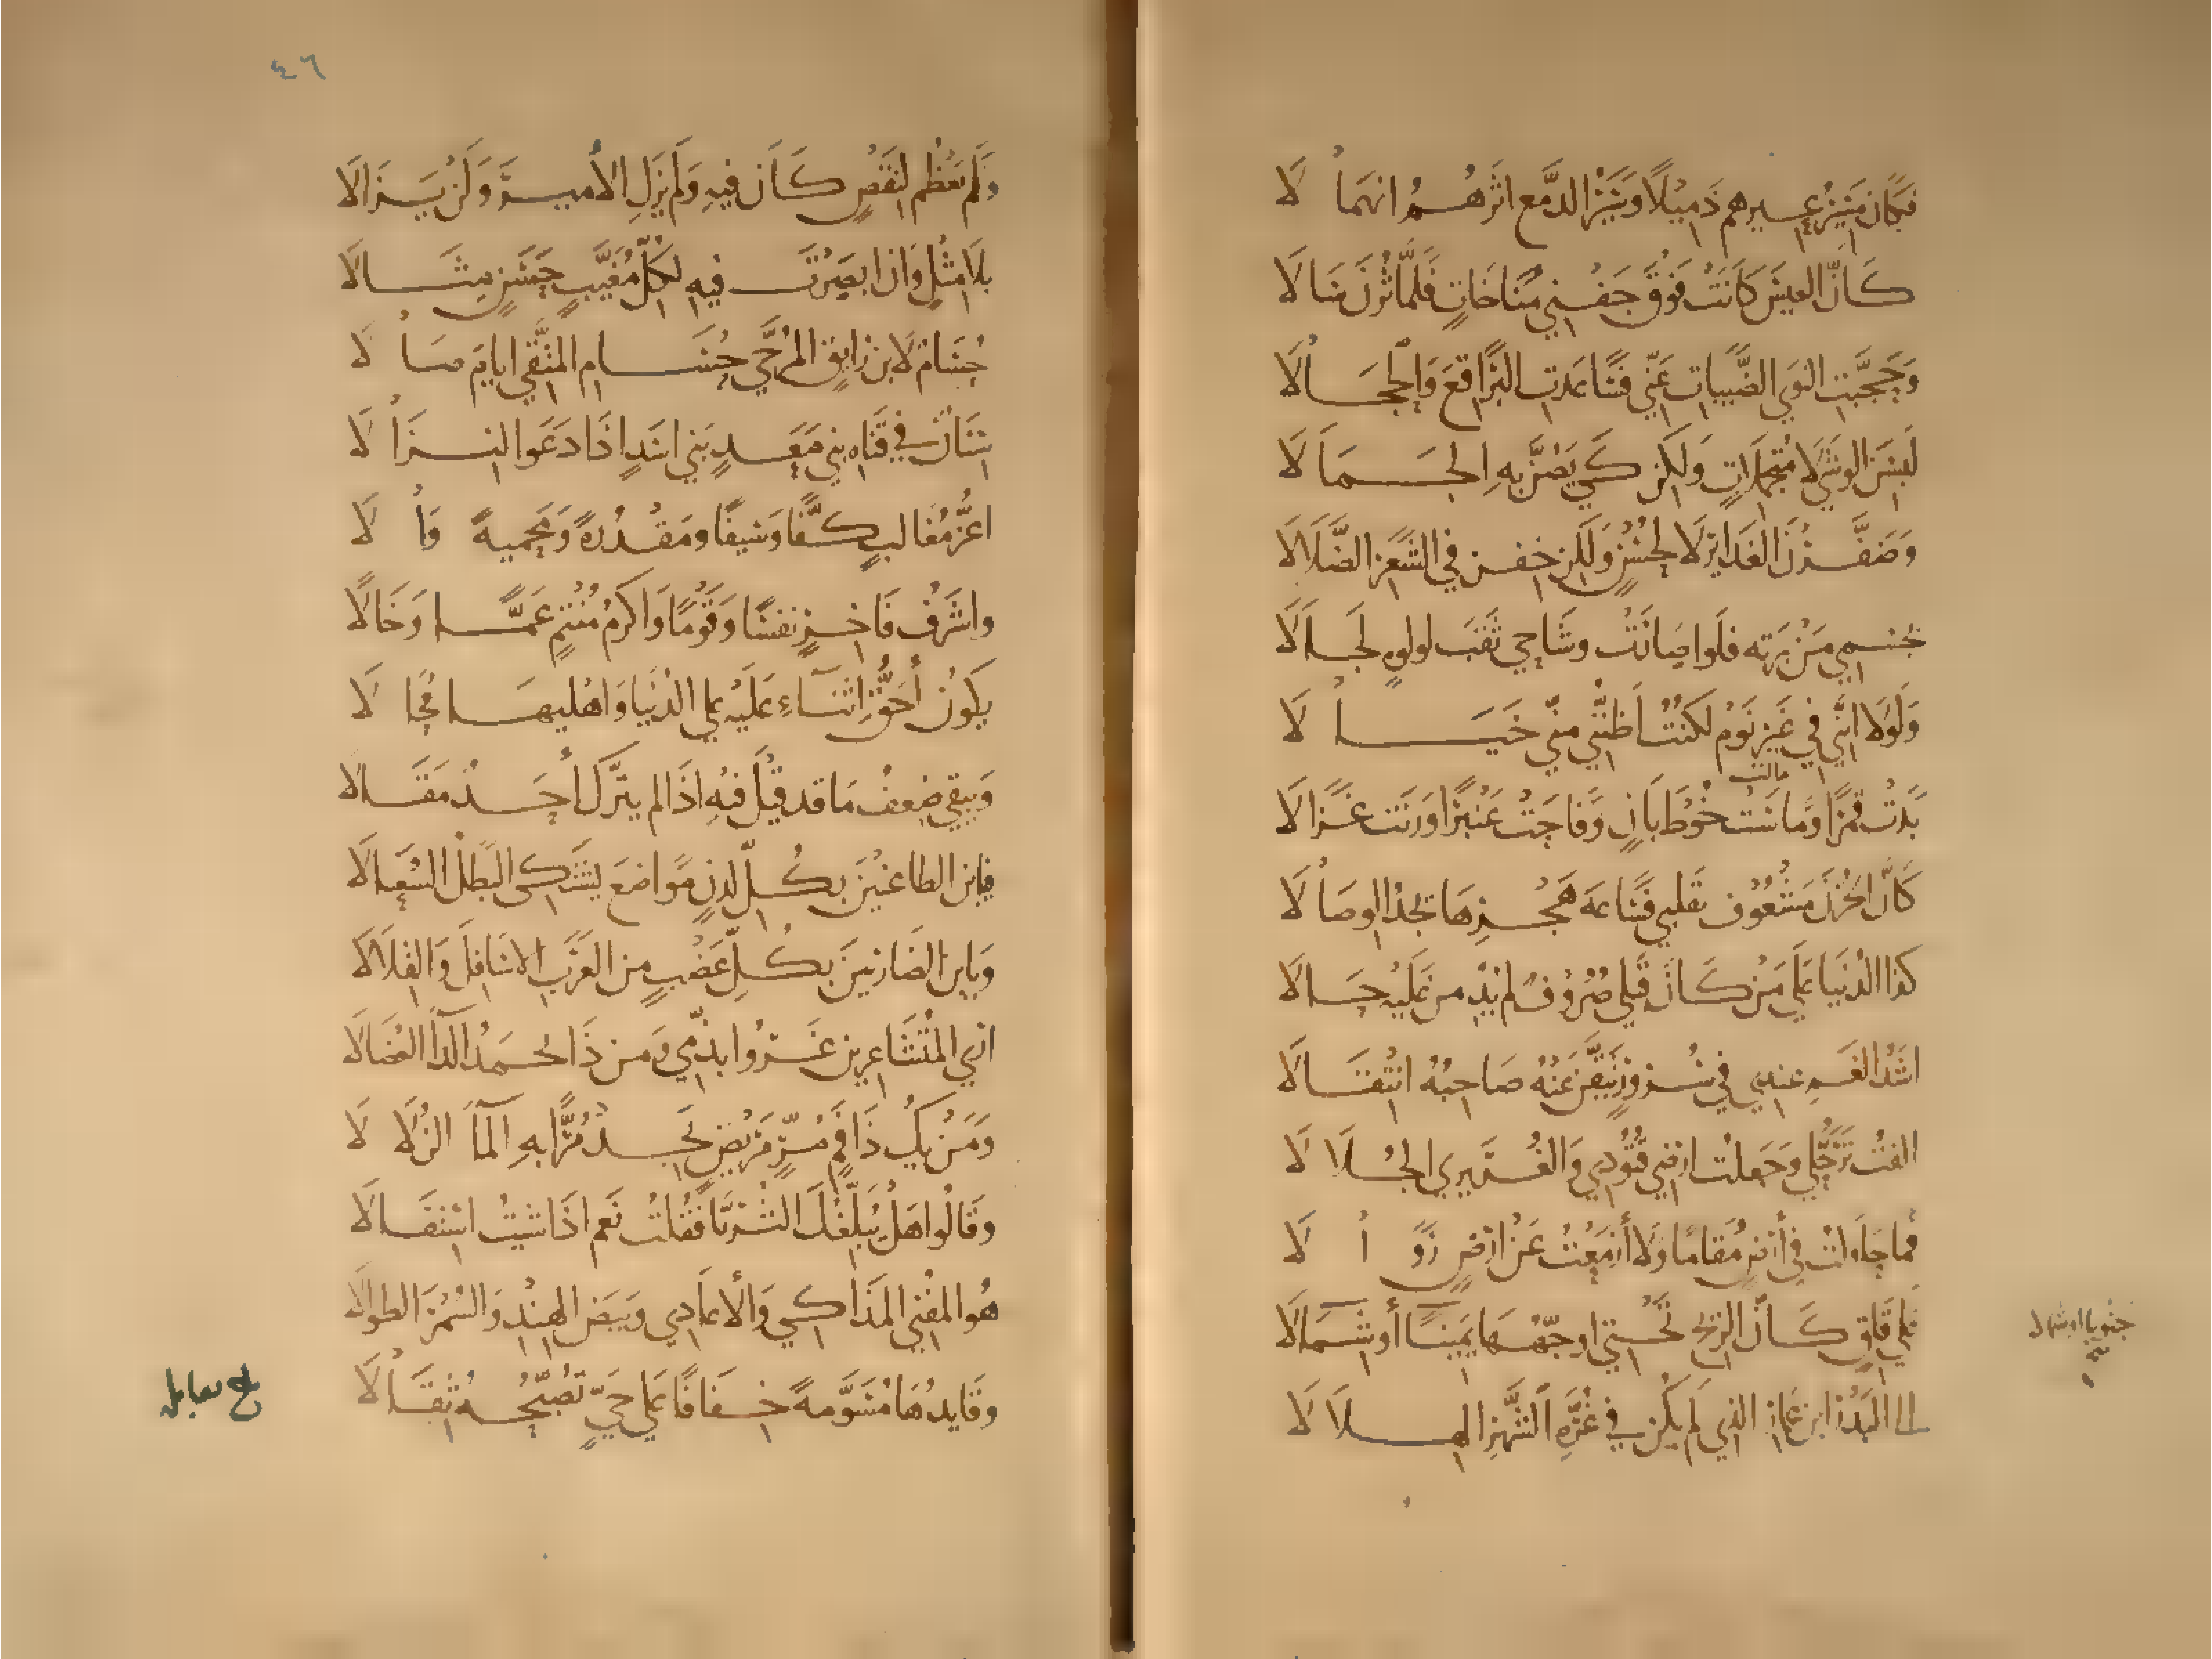 فكان مسير عيسهم ذميلا وسير الدمع اثرهم انهمالا
كَأنّ العيسَ كَانَتْ فَوْقَ جَفْني مُنَاخَاتٍ فَلَمَّا ثُرْنَ سَالَا
وَحَجَّبَتِ النَوى الظَّبياتِ عَنّي فَسَاعَدتِ البَرَاقعَ وَالحِجَالَا
لَبسْنَ الوشْيَ لَا مُتجمّلاتٍ وَلكن كَي يَصُنَّ بهِ الجَمَالَا
وَضَفَّرْنَ الغَدَايرَ لَا لِحُسْنٍ وَلَكن خِفنَ في الشَعَر الضَّلَالَا
بجسمي مَنْ بَرَته فلَو اصَارَتْ وشَاحي ثقبَ لولوةٍ لَجَالَا
وَلَولَا انّني في غَيرِ نَومٍ لكنتُ أظنّني منّي خَيَالَا
مالت
بَدَتْ قمَرًا ومَاسَتْ خُوطَ بَانٍ وفَاحَتْ عَنْبَرًا ورَنَت غَزَالَا
كَأنّ الحُزْنَ مَشْعُوفٌ بقلبي فسَاعَةَ هَجْرِهَا يجدُ الوِصَالَا
كذا الدُنيَا عَلَى مَنْ كَانَ قَبلي صُرُوفٌ لم يُدِمن عَلَيْهِ حَالَا
اشَدُّ الغَمِ عندي في سُرورٍ تَيقَّنَ عَنْهُ صَاحِبُهُ انْتِقَالَا
الفتُ تَرَحُّلي وَجَعلتُ ارْضي قُتُودِي وَالغُرَيري الجُلَالَا
فما حَاولتُ في أرْضٍ مُقَامًا وَلَا أزمَعْتُ عَنْ ارْضٍ زَوَالَا
عَلى قَلقٍ كَأنَّ الرّيحَ تَحْتي اوجّهُهَا يَمينًا أو شَمَالَا
جنوبا او شمالا
الى البَدْرِ ابن عَمّارِ الذي لَم يكُن في غُرّةِ الشَهْرِ الهِلَالَا
٤٦
وَلَم يَعْظُم لنَقْصٍ كَانَ فيهِ وَلَم يَزَلِ الأميرَ وَلَنْ يَزَالَا
بلَا مثْلٍ وَان ابصَرْتَ فيهِ لكُلّ مُغَيّبٍ حَسَنٍ مِثَالَا
حُسَامٌ لابن رَايقٍ المُرَجَّى حُسَامِ المتَّقي ايامَ صَالَا
سنَانٌ في قَنَاة بني مَعَدٍ بَني اسَدٍ اذَا دَعَوا النزَالَا
اعَزُّ مُغَالبٍ كَفًّا وَسَيفًا ومَقْدُرةً وَمَحميةً وَآلَا
واشرَفُ فَاخِرٍ نفسًا وَقَوْمًا وَاكرمُ مُنْتَمٍ عَمًّا وَخَالَا
يكونُ أحَقُّ إثنَاءٍ عَلَيْهِ على الدُنْيَا وَاهْليهَا مُحَالَا
وَيبقى ضِعفُ مَا قد قيْلَ فيْهِ اذَا لم يتّركْ أحَدٌ مَقَالَا
فيابن الطاعنينَ بكُلّ لدنٍ مَواضعَ يشتكي البَطَلُ السُعَالَا
وَيابن الضَاربينَ بكُلّ عَضْبٍ من العَرَبِ الاسَافلَ وَالقِلَالَا
ارَي المُتَشَاعرين غَرُوا بذَمّي وَمن ذَا يحمَدُ الدَاَ العُضَالَا
وَمَنْ يكُ ذَا فَمٍ مُرٍّ مَريْضٍ يَجدْ مُرًّا بهِ المَاَ الزُلَالَا
وقَالُوا هَلْ يُبَلّغُكَ الثُرَيَّا فَقُلتُ نَعم اذَا شئتُ اسْتِفَالَا
هُو المفْني المَذَاكي وَالأعَادي وَبيضَ الهنْدِ وَالسُمْرَ الطوَالَا
وقَايدُهَا مُسَوَّمةً خفَافًا عَلى حَيٍّ تُصَبّحُهُ ثقَالَا